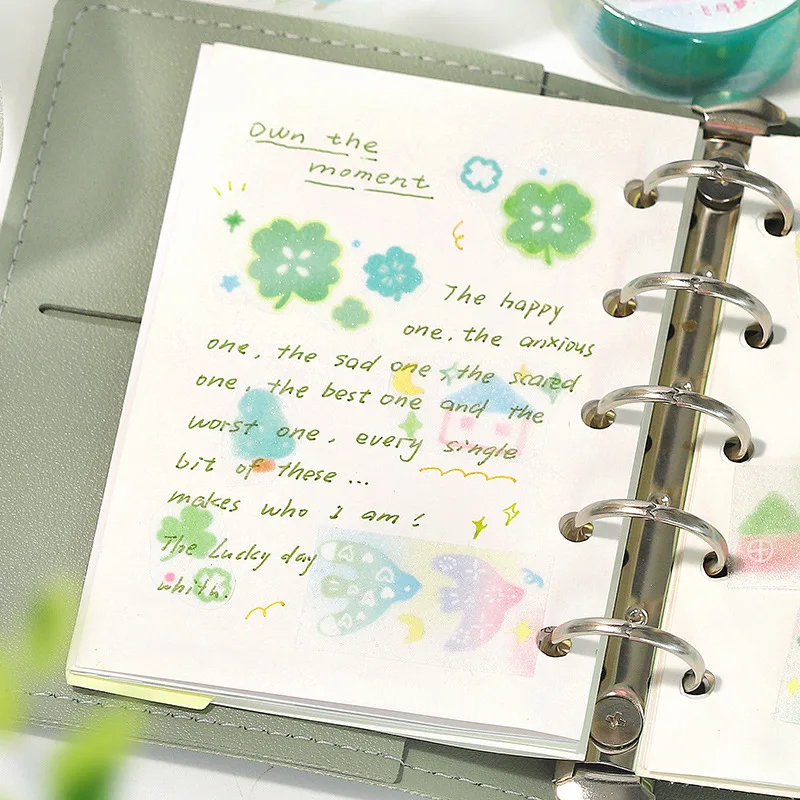 Own the
moment
The happy
one, the anxious
one, the sad one, the scared
one, the best one and the
worst one, every single
bit of these ...
makes who I am!
The Lucky day
whith.